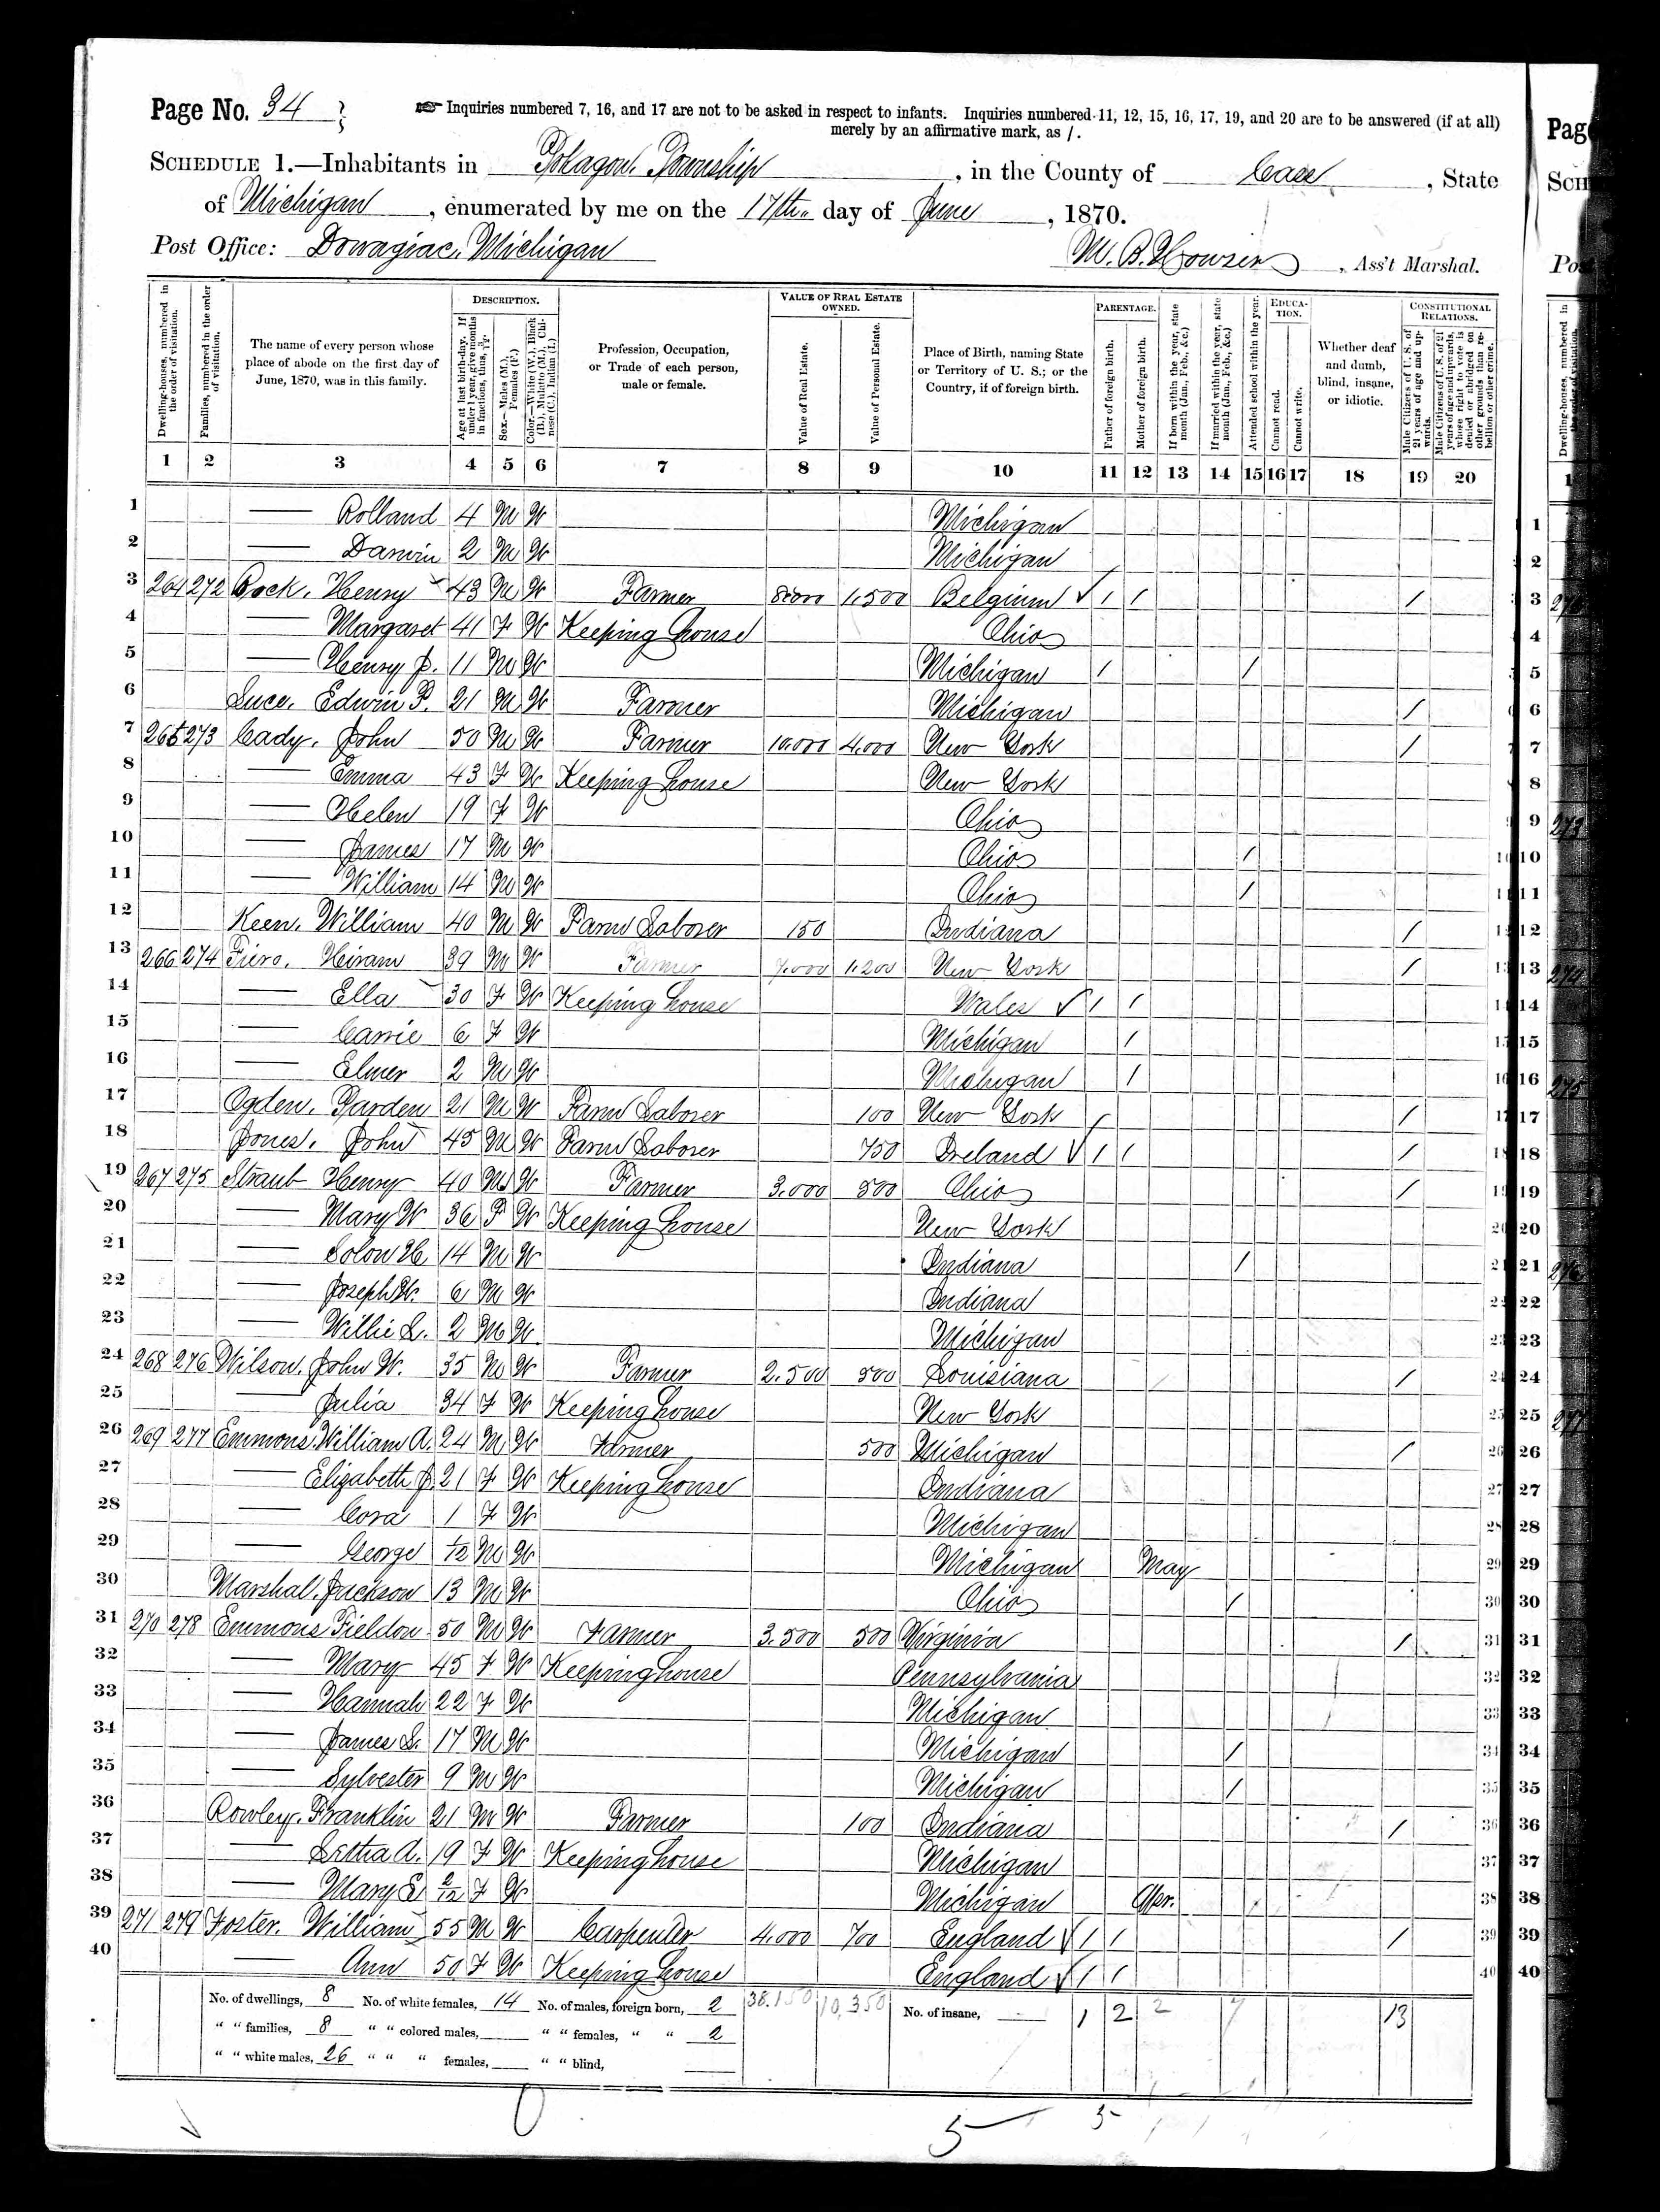 Page No. 34
Inquiries numbered 7, 16, and 17 are not to be asked in respect to infants. Inquiries numbered 11, 12, 15, 16, 17, 19, and 20 are to be answered (if at all)
merely by an affirmative mark, as /.
SCHEDULE 1.—Inhabitants in Pokagon Township, in the County of Cass, State
of Michigan, enumerated by me on the 17th day of June, 1870.
Post Office: Dowagiac, Michigan
M. B. , Ass't Marshal.
Dwelling-houses, numbered in the order of visitation.
Families, numbered in the order of visitation.
The name of every person whose place of abode on the first day of June, 1870, was in this family.
DESCRIPTION.
Age at last birth-day. If under 1 year, give months in fractions, thus, 3/12.
Sex.—Males (M.), Females (F.)
Color.—White (W.), Black (B.), Mulatto (M.), Chinese (C.), Indian (I.)
Profession, Occupation, or Trade of each person, male or female.
VALUE OF REAL ESTATE OWNED.
Value of Real Estate.
Value of Personal Estate.
Place of Birth, naming State or Territory of U. S.; or the Country, if of foreign birth.
PARENTAGE.
Father of foreign birth.
Mother of foreign birth.
If born within the year, state month (Jan., Feb., &c.)
If married within the year, state month (Jan., &c.)
Attended school within the year.
EDUCATION.
Cannot read.
Cannot write.
Whether deaf and dumb, blind, insane, or idiotic.
CONSTITUTIONAL RELATIONS.
Male Citizens of U. S. of 21 years of age and upwards.
Male Citizens of U. S. of 21 years of age and upwards, whose right to vote is denied or abridged on other grounds than rebellion or other crime.
1 2 3 4 5 6 7 8 9 10 11 12 13 14 15 16 17 18 19 20
1 — Rolland 4 M W Michigan 1
2 — Darwin 2 M W Michigan 2
3 264 272 Henry 43 M W Farmer 8000 1,500 Belgium ✓ / / / 3
4 — Margaret 41 F W Keeping house Ohio 4
5 — Henry J. 11 M W Michigan / / 5
6 Luce, Edwin P. 21 M W Farmer Michigan / 6
7 265 273 Cady, John 50 M W Farmer 10,000 4,000 New York / 7
8 — Emma 43 F W Keeping house New York 8
9 — Helen 19 F W Ohio 9
10 — James 17 M W Ohio / 10
11 — William 14 M W Ohio / 11
12 Keen, William 40 M W Farm Laborer 150 Indiana / 12
13 266 274 Fiero, Hiram 39 M W Farmer 7,000 1,200 New York / 13
14 — Ella 30 F W Keeping house Wales ✓ / / 14
15 — Carrie 6 F W Michigan / 15
16 — Elmer 2 M W Michigan / 16
17 Ogden, Parden 21 M W Farm Laborer 100 New York / / 17
18 Jones, John 45 M W Farm Laborer 750 Ireland ✓ / / / 18
19 267 275 Straub Henry 40 M W Farmer 3,000 800 Ohio / 19
20 — Mary W 36 F W Keeping house New York 20
21 — Solon H. 14 M W Indiana / 21
22 — Joseph W. 6 M W Indiana 22
23 — Willie L. 2 M W Michigan 23
24 268 276 Wilson, John W. 35 M W Farmer 2,500 800 Louisiana / 24
25 — Julia 34 F W Keeping house New York 25
26 269 277 Emmons, William A. 24 M W Farmer 500 Michigan / 26
27 — Elizabeth J. 21 F W Keeping house Indiana 27
28 — Cora 1 F W Michigan 28
29 — George 1/12 M W Michigan May 29
30 Marshal, Jackson 13 M W Ohio / 30
31 270 278 Emmons Fieldon 50 M W Farmer 3,500 500 Virginia / 31
32 — Mary 45 F W Keeping house Pennsylvania 32
33 — Hannah 22 F W Michigan 33
34 — James L. 17 M W Michigan / 34
35 — Sylvester 9 M W Michigan / 35
36 Rowley, Franklin 21 M W Farmer 100 Indiana / 36
37 — A. 19 F W Keeping house Michigan 37
38 — Mary E. 2/12 F W Michigan Apr. 38
39 271 279 Foster, William 55 M W Carpenter 4,000 700 England ✓ / / / 39
40 — Ann 50 F W Keeping house England ✓ / / 40
No. of dwellings, 8 No. of white females, 14 No. of males, foreign born, 2 38,150 10,350 No. of insane, 1 2 2 7 13
" " families, 8 " " colored males, " " females, " " 2
" " white males, 26 " " " females, " " blind,
5 5